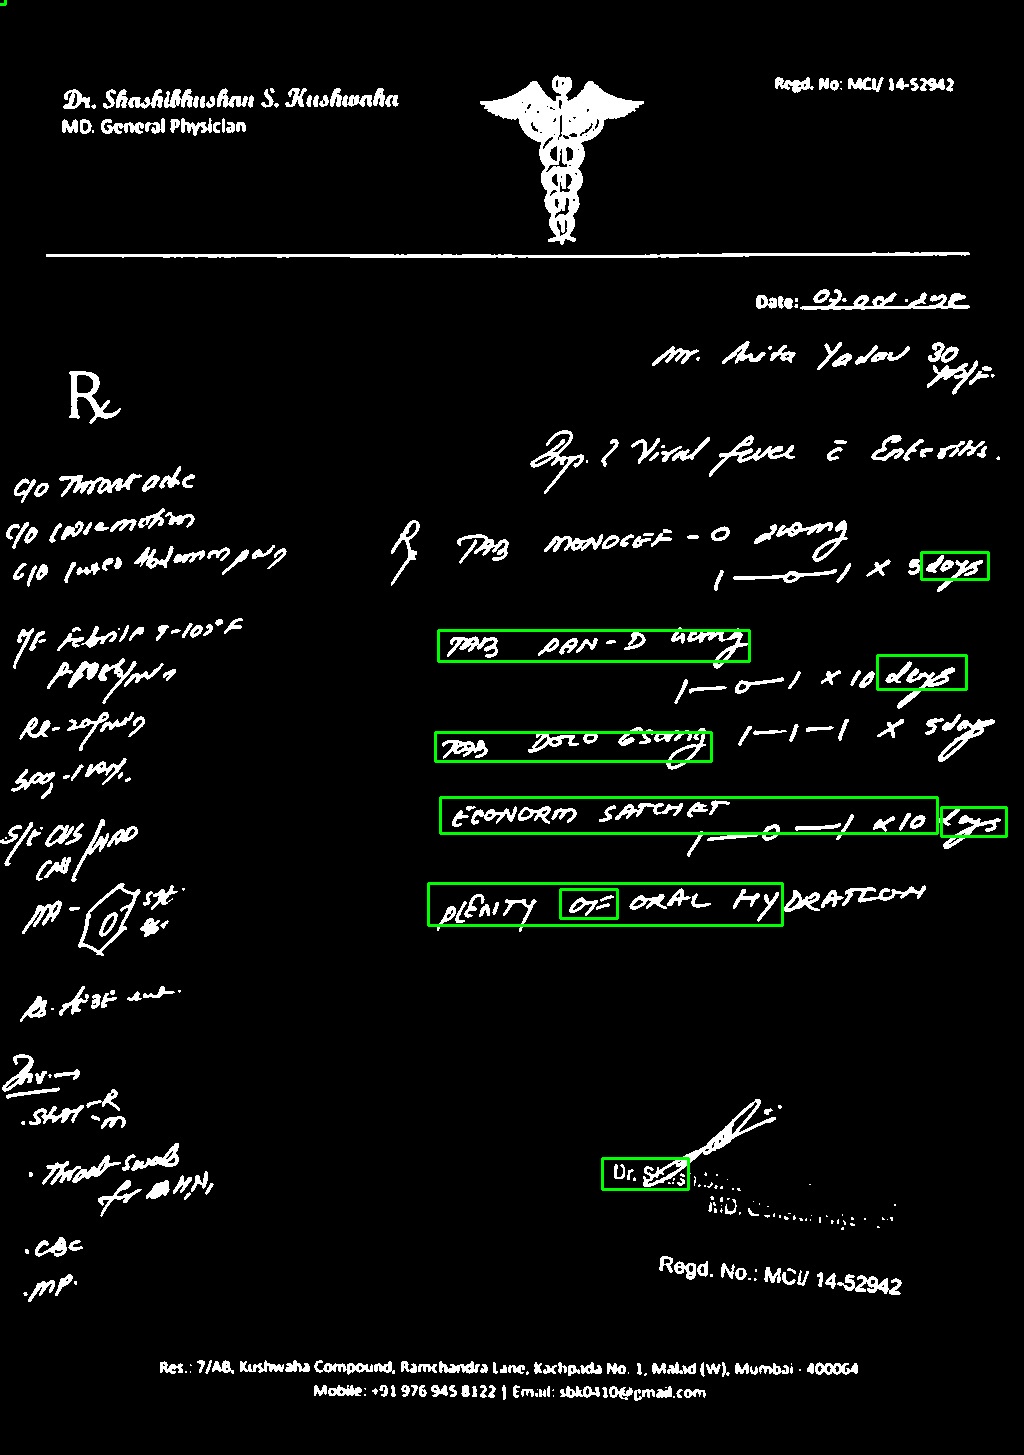 Dr. Shashibhushan S. Kushwaha
MD. General Physician
Regd. No: MCI/ 14-52942
Date: 07. Oct
Mr. Anita Yadav 30
yrs/F.
Rx
Imp. ? Viral fever c̄ Enteritis.
C/O Throat ache
C/O loose motion
C/O Lower Abdomen pain
O/E Febrile
RR-20/min
S/E CVS
CNS /NAD
PA -
Inv. →
. Stool - R
- m
. Throat swab
for H1N1
. CBC
. MP.
Rx TAB MONOCEF - O 200mg
1 — o — 1 × 5 days
TAB PAN-D 40mg
1 — o — 1 × 10 days
TAB DOLO 650mg 1 — 1 — 1 × 5 days
ECONORM SATCHET
1 — 0 — 1 × 10 days
PLENITY OF ORAL HYDRATION
Dr.
MD.
Regd. No.: MCI/ 14-52942
Res.: 7/AB, Kushwaha Compound, Ramchandra Lane, Kachpada No. 1, Malad (W), Mumbai - 400064
Mobile: +91 976 945 8122 | Email: sbk0410@gmail.com